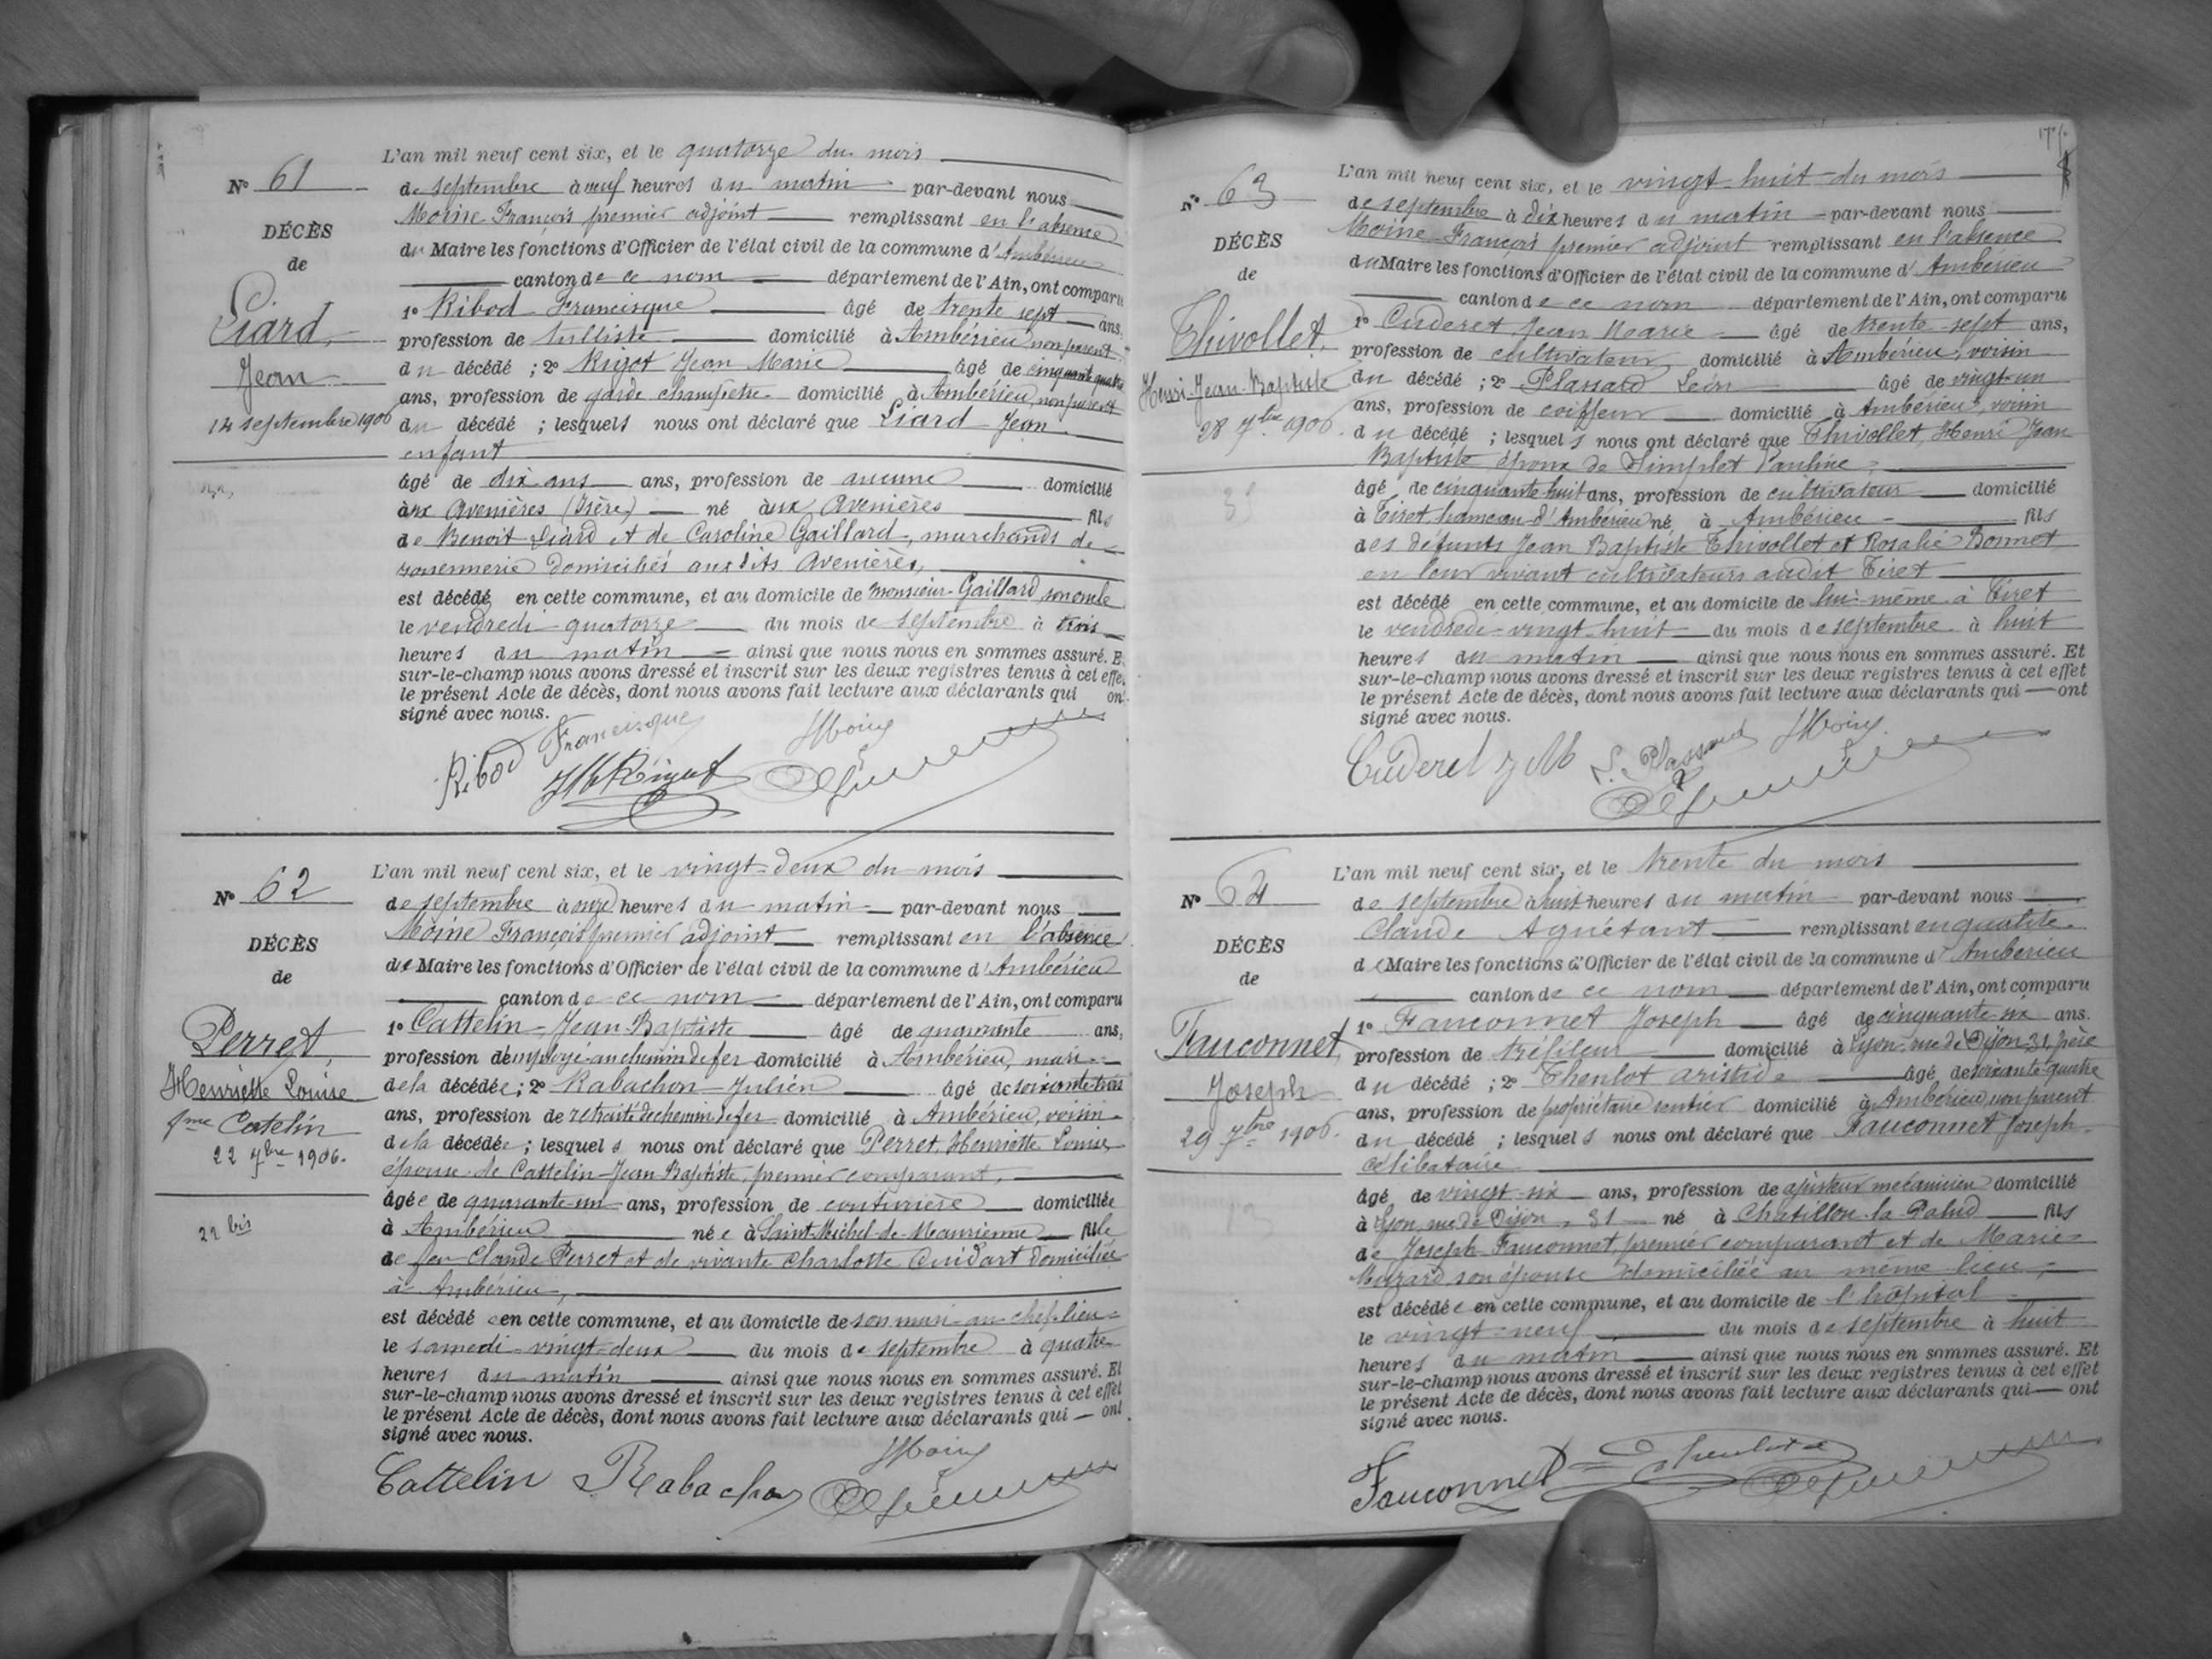 N° 61
DÉCÈS
de
Liard,
Jean
14 septembre 1906
L'an mil neuf cent six, et le quatorze du mois
de septembre à neuf heures du matin par-devant nous
Moine François premier adjoint remplissant en l'absence
du Maire les fonctions d'Officier de l'état civil de la commune d'Ambérieu
canton de ce nom département de l'Ain, ont comparu
1° Ribod Francisque âgé de trente sept ans,
profession de tulliste domicilié à Ambérieu non parent
du décédé ; 2° Rigot Jean Marie âgé de cinquante quatre
ans, profession de garde champêtre domicilié à Ambérieu, non parent
du décédé ; lesquels nous ont déclaré que Liard Jean
enfant
âgé de dix ans ans, profession de aucune domicilié
aux Avenières (Isère) né aux Avenières fils
de Benoit Liard et de Caroline Gaillard, marchands de
rouennerie domiciliés aux dits Avenières,
est décédé en cette commune, et au domicile de monsieur Gaillard, son oncle
le vendredi quatorze du mois de septembre à trois
heures du matin ainsi que nous nous en sommes assuré. E
sur-le-champ nous avons dressé et inscrit sur les deux registres tenus à cet effet
le présent Acte de décès, dont nous avons fait lecture aux déclarants qui ont
signé avec nous.
Ribod Francisque JM Rigot Moine
N° 62
DÉCÈS
de
Perret,
Henriette Louise
fme Catelin
22 7bre 1906.
22 bis
L'an mil neuf cent six, et le vingt-deux du mois
de septembre à onze heures du matin par-devant nous
Moine François premier adjoint remplissant en l'absence
de Maire les fonctions d'Officier de l'état civil de la commune d'Ambérieu
canton de ce nom département de l'Ain, ont comparu
1° Cattelin Jean Baptiste âgé de quarante ans,
profession d'employé au chemin de fer domicilié à Ambérieu, mari
de la décédée ; 2° Rabachon Julien âgé de soixante trois
ans, profession de retraité de chemin de fer domicilié à Ambérieu, voisin
de la décédée ; lesquels nous ont déclaré que Perret, Henriette Louise,
épouse de Cattelin Jean Baptiste, premier comparant,
âgée de quarante-un ans, profession de couturière domiciliée
à Ambérieu née à Saint-Michel-de-Maurienne fille
de feu Claude Perret et de vivante Charlotte Cuidart domiciliée
à Ambérieu,
est décédée en cette commune, et au domicile de son mari au chef-lieu
le samedi vingt-deux du mois de septembre à quatre
heures du matin ainsi que nous nous en sommes assuré. Et
sur-le-champ nous avons dressé et inscrit sur les deux registres tenus à cet effet
le présent Acte de décès, dont nous avons fait lecture aux déclarants qui ont
signé avec nous.
Cattelin Rabachon Moine
N° 63
DÉCÈS
de
Thivollet,
Henri-Jean-Baptiste
28 7bre 1906.
L'an mil neuf cent six, et le vingt-huit du mois
de septembre à dix heures du matin par-devant nous
Moine François premier adjoint remplissant en l'absence
du Maire les fonctions d'Officier de l'état civil de la commune d'Ambérieu
canton de ce nom département de l'Ain, ont comparu
1° Cuderet Jean Marie âgé de trente-sept ans,
profession de cultivateur domicilié à Ambérieu, voisin
du décédé ; 2° Plassard Léon âgé de vingt-un
ans, profession de coiffeur domicilié à Ambérieu, voisin
du décédé ; lesquels nous ont déclaré que Thivollet, Henri Jean
Baptiste époux de Simplet Pauline,
âgé de cinquante huit ans, profession de cultivateur domicilié
à Tiret, hameau d'Ambérieu né à Ambérieu fils
des défunts Jean Baptiste Thivollet et Rosalie Bonnet
en leur vivant cultivateurs audit Tiret
est décédé en cette commune, et au domicile de lui-même à Tiret
le vendredi vingt-huit du mois de septembre à huit
heures du matin ainsi que nous nous en sommes assuré. Et
sur-le-champ nous avons dressé et inscrit sur les deux registres tenus à cet effet
le présent Acte de décès, dont nous avons fait lecture aux déclarants qui ont
signé avec nous.
Cuderet JM L. Plassard Moine
N° 64
DÉCÈS
de
Fauconnet,
Joseph
29 7bre 1906.
L'an mil neuf cent six, et le trente du mois
de septembre à huit heures du matin par-devant nous
Claude Aguétant remplissant en qualité
de Maire les fonctions d'Officier de l'état civil de la commune d'Ambérieu
canton de ce nom département de l'Ain, ont comparu
1° Fauconnet Joseph âgé de cinquante-six ans.
profession de tréfileur domicilié à Lyon, rue de Dijon 31, père
du décédé ; 2° Thenlot Aristide âgé de soixante quatre
ans, profession de propriétaire rentier domicilié à Ambérieu, non parent
du décédé ; lesquels nous ont déclaré que Fauconnet Joseph
célibataire
âgé de vingt-six ans, profession de ajusteur mécanicien domicilié
à Lyon, rue de Dijon, 31 né à Chatillon-la-Palud fils
de Joseph Fauconnet, premier comparant et de Marie
son épouse domiciliée au même lieu,
est décédé en cette commune, et au domicile de l'hôpital
le vingt-neuf du mois de septembre à huit
heures du matin ainsi que nous nous en sommes assuré. Et
sur-le-champ nous avons dressé et inscrit sur les deux registres tenus à cet effet
le présent Acte de décès, dont nous avons fait lecture aux déclarants qui ont
signé avec nous.
Fauconnet